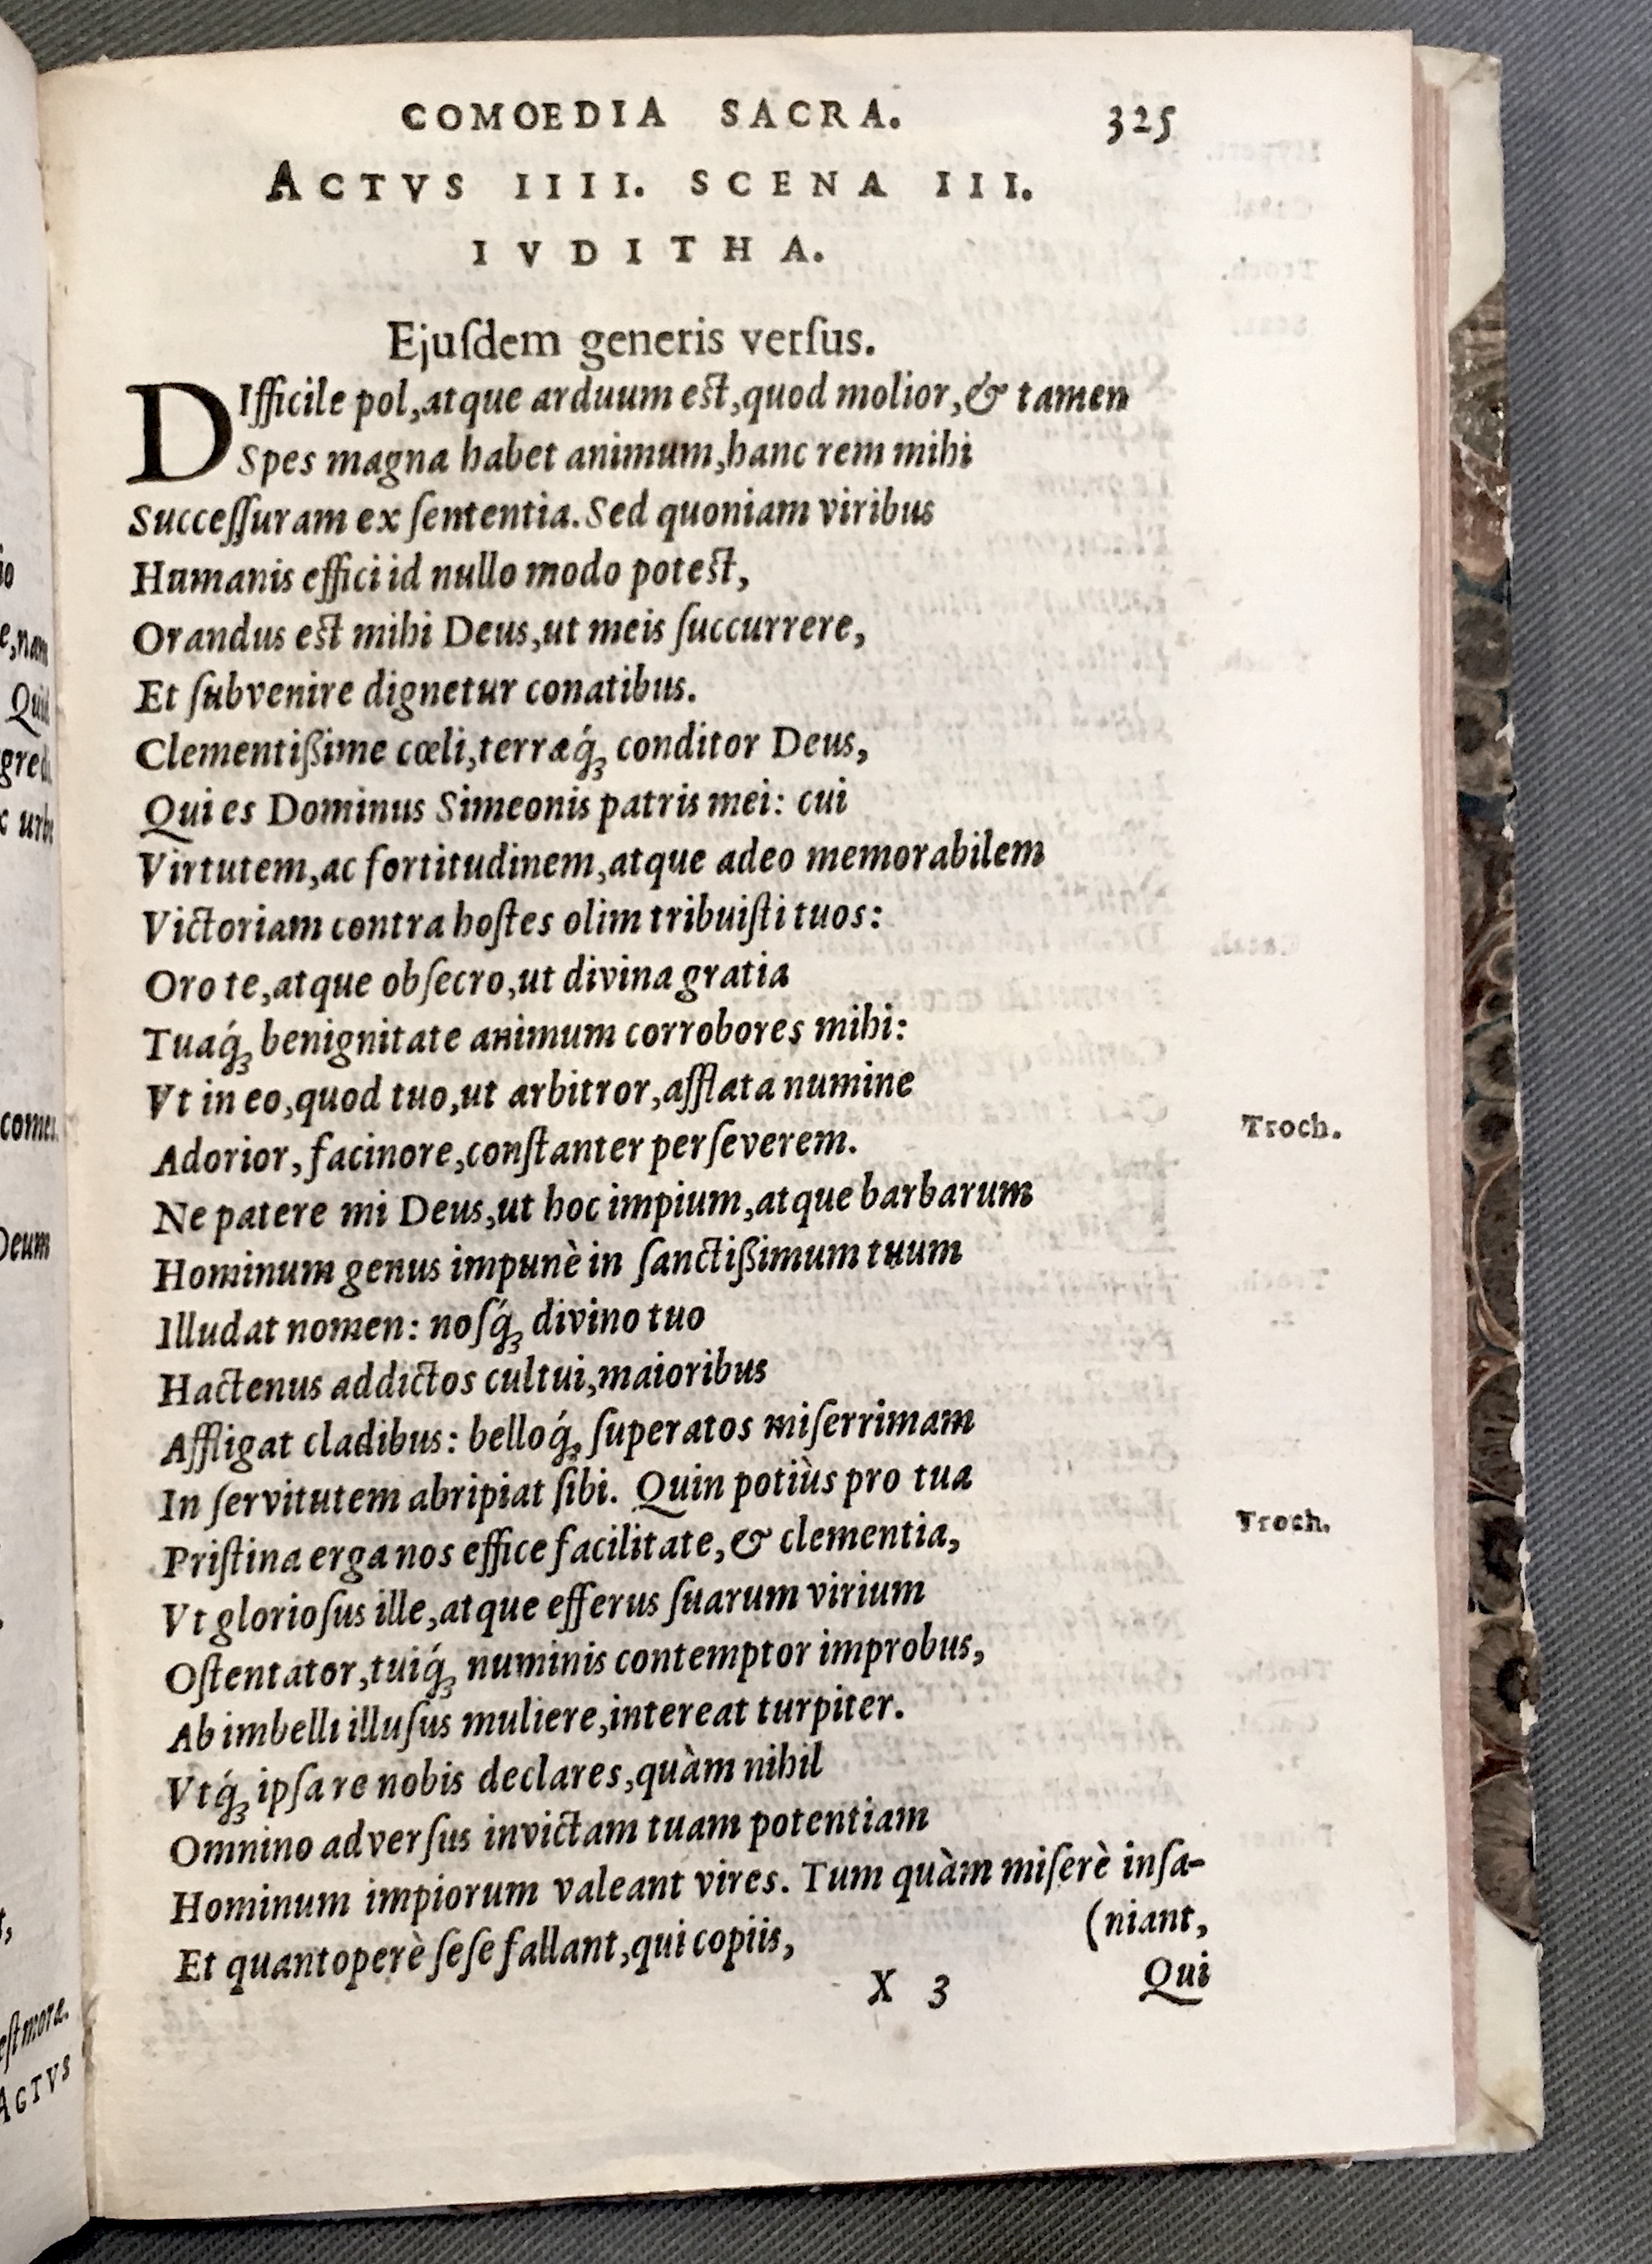 COMOEDIA SACRA. 325
ACTVS IIII. SCENA III.
IVDITHA.
Ejuſdem generis verſus.
DIfficile pol,atque arduum eſt,quod molior,& tamen
Spes magna habet animum,hanc rem mihi
Succeſſuram ex ſententia.Sed quoniam viribus
Humanis effici id nullo modo poteſt,
Orandus eſt mihi Deus,ut meis ſuccurrere,
Et ſubvenire dignetur conatibus.
Clementißime cœli,terræq́ꝫ conditor Deus,
Qui es Dominus Simeonis patris mei: cui
Virtutem,ac fortitudinem,atque adeo memorabilem
Victoriam contra hoſtes olim tribuiſti tuos:
Oro te,atque obſecro,ut divina gratia
Tuaq́ꝫ benignitate animum corrobores mihi:
Vt in eo,quod tuo,ut arbitror,afflata numine
Adorior, facinore,conſtanter perſeverem. Troch.
Ne patere mi Deus,ut hoc impium,atque barbarum
Hominum genus impunè in ſanctißimum tuum
Illudat nomen: noſq́ꝫ divino tuo
Hactenus addictos cultui,maioribus
Affligat cladibus: belloq́ꝫ ſuperatos miſerrimam
In ſervitutem abripiat ſibi. Quin potiùs pro tua
Priſtina erga nos effice facilitate,& clementia, Troch.
Vt glorioſus ille,atque efferus ſuarum virium
Oſtentator,tuiq́ꝫ numinis contemptor improbus,
Ab imbelli illuſus muliere,intereat turpiter.
Vtq́ꝫ ipſa re nobis declares,quàm nihil
Omnino adverſus invictam tuam potentiam
Hominum impiorum valeant vires. Tum quàm miſerè inſa-
(niant,
Et quantoperè ſeſe fallant,qui copiis,
X 3 Qui
e,nam
gred
comes.
Deum
eſt mora.
ACTVS